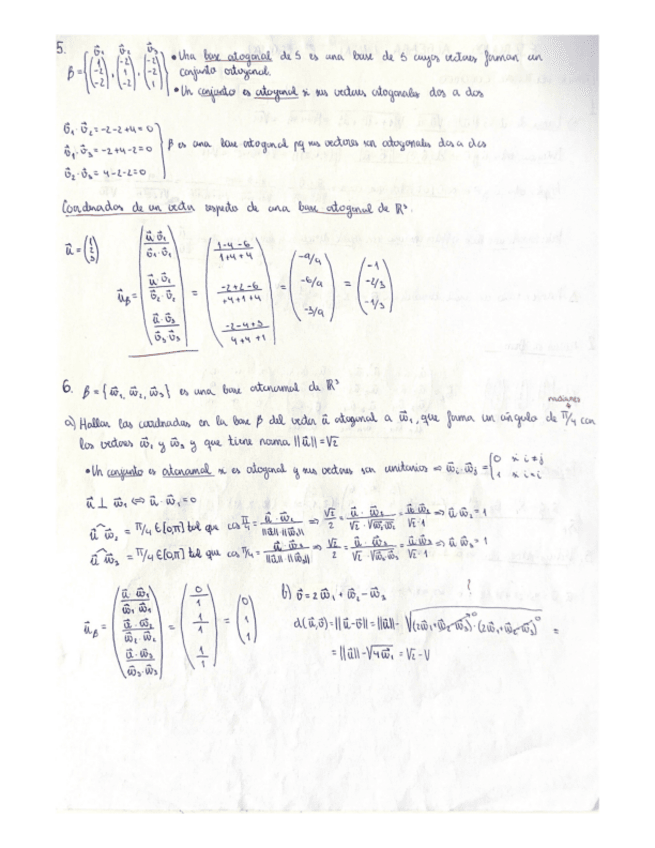 5.
β = { (1 -2 -2), (-2 1 -2), (-2 -2 1) } • Una base otogonal de S es una base de S cuyos vectores forman un
conjunto ortogonal.
• Un conjunto es otogonal si sus vectores otogonales dos a dos
v⃗₁ · v⃗₂ = -2-2+4 = 0
v⃗₁ · v⃗₃ = -2+4-2 = 0 } β es una base otogonal pq sus vectores son otogonales dos a dos
v⃗₂ · v⃗₃ = 4-2-2 = 0
Coordenadas de un vector respecto de una base otogonal de ℝ³.
u⃗ = (1 2 3)
u⃗β = ( u⃗·v⃗₁/v⃗₁·v⃗₁, u⃗·v⃗₂/v⃗₂·v⃗₂, u⃗·v⃗₃/v⃗₃·v⃗₃ ) = ( 1-4-6/1+4+4, -2+2-6/+4+1+4, -2-4+3/4+4+1 ) = ( -9/9, -6/9, -3/9 ) = ( -1, -2/3, -1/3 )
6. β = {w⃗₁, w⃗₂, w⃗₃} es una base otonormal de ℝ³
radianes
a) Hallas las coordenadas en la base β del vector u⃗ otogonal a w⃗₁, que forma un ángulo de π/4 con
los vectores w⃗₂ y w⃗₃ y que tiene norma ||u⃗|| = √2
• Un conjunto es otonormal si es otogonal y sus vectores son unitarios ⇒ w⃗ᵢ·w⃗ⱼ = { 0 si i≠j
1 si i=j
u⃗ ⊥ w⃗₁ ⇔ u⃗ · w⃗₁ = 0
u⃗ w⃗₂ = π/4 ∈ [0,π] tal que cos π/4 = u⃗·w⃗₂/||u⃗||·||w⃗₂|| ⇒ √2/2 = u⃗·w⃗₂/√2·√w⃗₂w⃗₂ = u⃗·w⃗₂/√2·1 ⇒ u⃗·w⃗₂ = 1
u⃗ w⃗₃ = π/4 ∈ [0,π] tal que cos π/4 = u⃗·w⃗₃/||u⃗||·||w⃗₃|| ⇒ √2/2 = u⃗·w⃗₃/√2·√w⃗₃w⃗₃ = u⃗·w⃗₃/√2·1 ⇒ u⃗·w⃗₃ = 1
u⃗β = ( u⃗·w⃗₁/w⃗₁·w⃗₁, u⃗·w⃗₂/w⃗₂·w⃗₂, u⃗·w⃗₃/w⃗₃·w⃗₃ ) = ( 0/1, 1/1, 1/1 ) = ( 0, 1, 1 )
b) v⃗ = 2w⃗₁ + w⃗₂ - w⃗₃
?
d(u⃗,v⃗) = ||u⃗-v⃗|| = ||u⃗|| - √(2w⃗₁+w⃗₂-w⃗₃)·(2w⃗₁+w⃗₂-w⃗₃) =
= ||u⃗|| - √4w⃗₁ = √2 - √